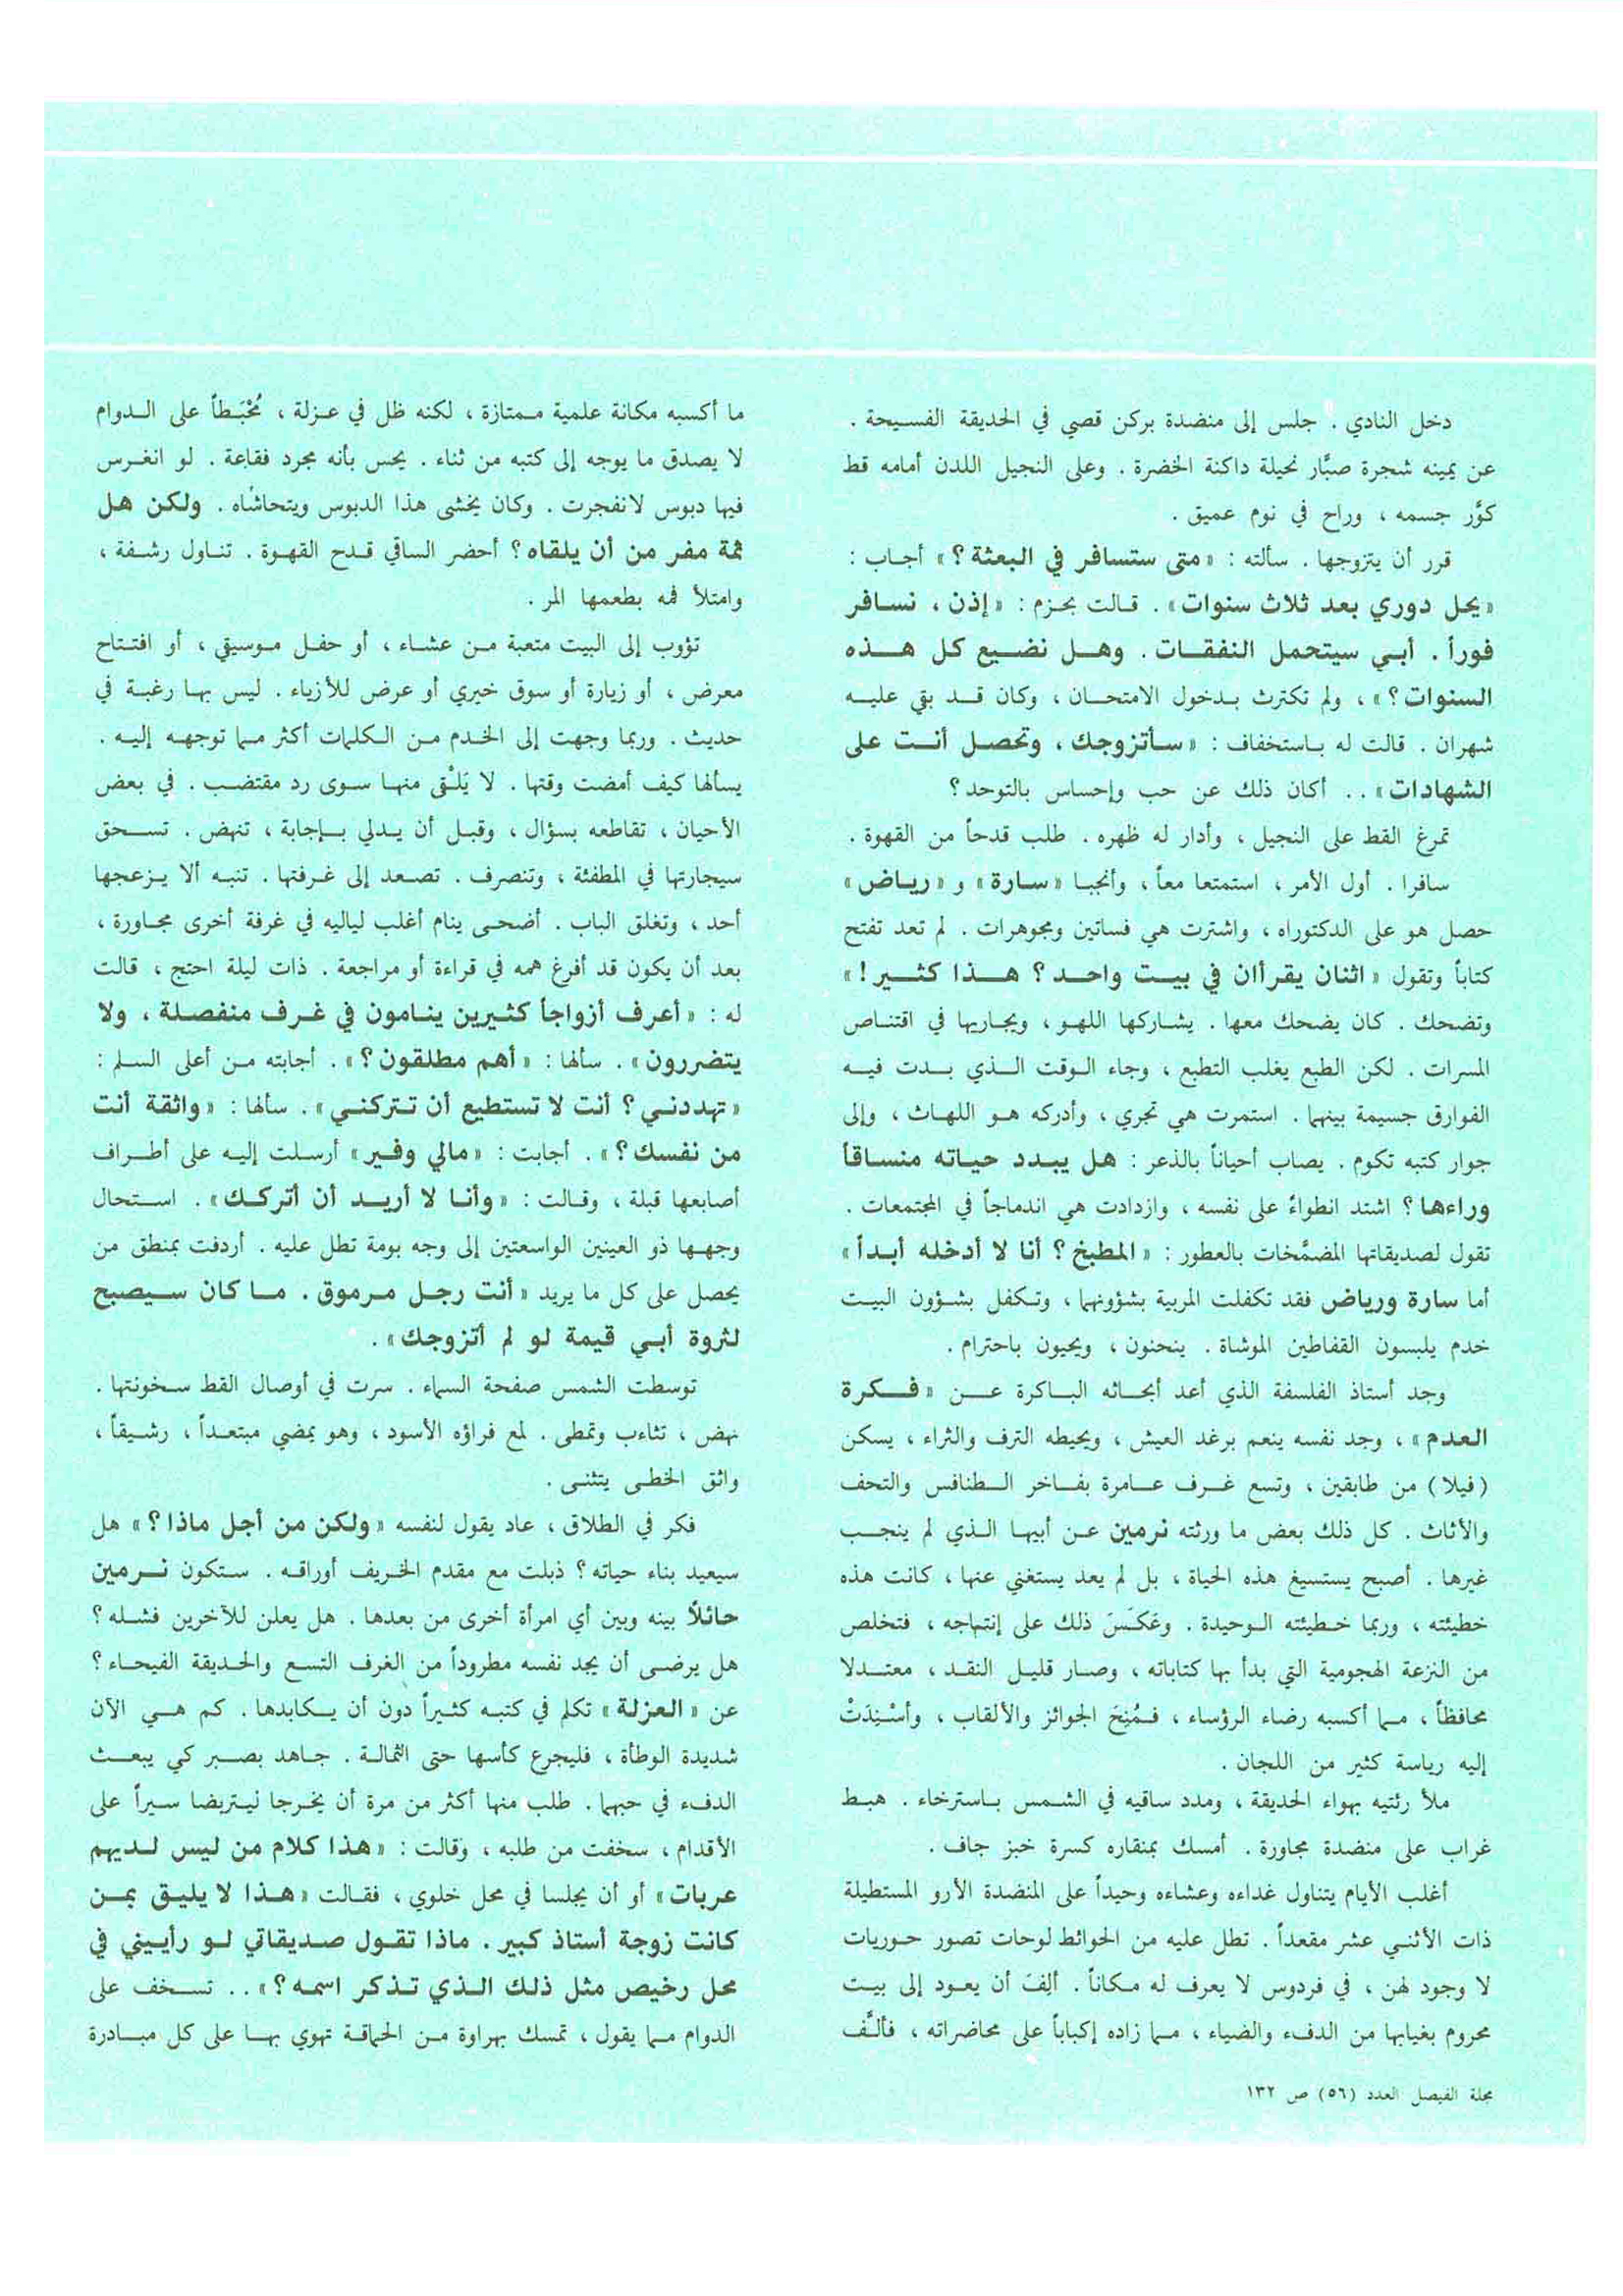 دخل النادي . جلس إلى منضدة بركن قصي في الحديقة الفسيحة .
عن يمينه شجرة صبَّار نحيلة داكنة الخضرة . وعلى النجيل اللدن أمامه قط
كوَّر جسمه ، وراح في نوم عميق .
قرر أن يتزوجها . سألته : «متى ستسافر في البعثة ؟» أجاب :
«يحل دوري بعد ثلاث سنوات» . قالت بحزم : «إذن ، نسافر
فوراً . أبي سيتحمل النفقات . وهل نضيع كل هذه
السنوات ؟» ، ولم تكترث بدخول الامتحان ، وكان قد بقي عليه
شهران . قالت له باستخفاف : «سأتزوجك ، وتحصل أنت على
الشهادات» .. أكان ذلك عن حب وإحساس بالتوحد ؟
تمرغ القط على النجيل ، وأدار له ظهره . طلب قدحاً من القهوة .
سافرا . أول الأمر ، استمتعا معاً ، وأنجبا «سارة» و «رياض»
حصل هو على الدكتوراه ، واشترت هي فساتين ومجوهرات . لم تعد تفتح
كتاباً وتقول «اثنان يقرأان في بيت واحد ؟ هذا كثير !»
وتضحك . كان يضحك معها . يشاركها اللهو ، ويجاريها في اقتناص
المسرات . لكن الطبع يغلب التطبع ، وجاء الوقت الذي بدت فيه
الفوارق جسيمة بينهما . استمرت هي تجري ، وأدركه هو اللهاث ، وإلى
جوار كتبه تكوم . يصاب أحياناً بالذعر : هل يبدد حياته منساقاً
وراءها ؟ اشتد انطواءً على نفسه ، وازدادت هي اندماجاً في المجتمعات .
تقول لصديقاتها المضمَّخات بالعطور : «المطبخ ؟ أنا لا أدخله أبداً»
أما سارة ورياض فقد تكفلت المربية بشؤونهما ، وتكفل بشؤون البيت
خدم يلبسون القفاطين الموشاة . ينحنون ، ويحيون باحترام .
وجد أستاذ الفلسفة الذي أعد أبحاثه الباكرة عن «فكرة
العدم» ، وجد نفسه ينعم برغد العيش ، ويحيطه الترف والثراء ، يسكن
(فيلا) من طابقين ، وتسع غرف عامرة بفاخر الطنافس والتحف
والأثاث . كل ذلك بعض ما ورثته نرمين عن أبيها الذي لم ينجب
غيرها . أصبح يستسيغ هذه الحياة ، بل لم يعد يستغني عنها ، كانت هذه
خطيئته ، وربما خطيئته الوحيدة . وعَكَسَ ذلك على إنتاجه ، فتخلص
من النزعة الهجومية التي بدأ بها كتاباته ، وصار قليل النقد ، معتدلا
محافظاً ، مما أكسبه رضاء الرؤساء ، فمُنِحَ الجوائز والألقاب ، وأسْنِدَتْ
إليه رياسة كثير من اللجان .
ملأ رئتيه بهواء الحديقة ، ومدد ساقيه في الشمس باسترخاء . هبط
غراب على منضدة مجاورة . أمسك بمنقاره كسرة خبز جاف .
أغلب الأيام يتناول غداءه وعشاءه وحيداً على المنضدة الأرو المستطيلة
ذات الأثني عشر مقعداً . تطل عليه من الحوائط لوحات تصور حوريات
لا وجود لهن ، في فردوس لا يعرف له مكاناً . ألِفَ أن يعود إلى بيت
محروم بغيابها من الدفء والضياء ، مما زاده إكباباً على محاضراته ، فألَّف
ما أكسبه مكانة علمية ممتازة ، لكنه ظل في عزلة ، مُحْبَطاً على الدوام
لا يصدق ما يوجه إلى كتبه من ثناء . يحس بأنه مجرد فقاعة . لو انغرس
فيها دبوس لانفجرت . وكان يخشى هذا الدبوس ويتحاشاه . ولكن هل
ثمة مفر من أن يلقاه ؟ أحضر الساقي قدح القهوة . تناول رشفة ،
وامتلأ فمه بطعمها المر .
تؤوب إلى البيت متعبة من عشاء ، أو حفل موسيقي ، أو افتتاح
معرض ، أو زيارة أو سوق خيري أو عرض للأزياء . ليس بها رغبة في
حديث . وربما وجهت إلى الخدم من الكلمات أكثر مما توجهه إليه .
يسألها كيف أمضت وقتها . لا يَلْقى منها سوى رد مقتضب . في بعض
الأحيان ، تقاطعه بسؤال ، وقبل أن يدلي بإجابة ، تنهض . تسحق
سيجارتها في المطفئة ، وتنصرف . تصعد إلى غرفتها . تنبه ألا يزعجها
أحد ، وتغلق الباب . أضحى ينام أغلب لياليه في غرفة أخرى مجاورة ،
بعد أن يكون قد أفرغ همه في قراءة أو مراجعة . ذات ليلة احتج ، قالت
له : «أعرف أزواجاً كثيرين ينامون في غرف منفصلة ، ولا
يتضررون» . سألها : «أهم مطلقون ؟» . أجابته من أعلى السلم :
«تهددني ؟ أنت لا تستطيع أن تتركني» . سألها : «واثقة أنت
من نفسك ؟» . أجابت : «مالي وفير» أرسلت إليه على أطراف
أصابعها قبلة ، وقالت : «وأنا لا أريد أن أتركك» . استحال
وجهها ذو العينين الواسعتين إلى وجه بومة تطل عليه . أردفت بمنطق من
يحصل على كل ما يريد «أنت رجل مرموق . ما كان سيصبح
لثروة أبي قيمة لو لم أتزوجك» .
توسطت الشمس صفحة السماء . سرت في أوصال القط سخونتها .
نهض ، تثاءب وتمطى . لمع فراؤه الأسود ، وهو يمضي مبتعداً ، رشيقاً ،
واثق الخطى يتثنى .
فكر في الطلاق ، عاد يقول لنفسه «ولكن من أجل ماذا ؟» هل
سيعيد بناء حياته ؟ ذبلت مع مقدم الخريف أوراقه . ستكون نرمين
حائلاً بينه وبين أي امرأة أخرى من بعدها . هل يعلن للآخرين فشله ؟
هل يرضى أن يجد نفسه مطروداً من الغرف التسع والحديقة الفيحاء ؟
عن «العزلة» تكلم في كتبه كثيراً دون أن يكابدها . كم هي الآن
شديدة الوطأة ، فليجرع كأسها حتى الثمالة . جاهد بصبر كي يبعث
الدفء في حبهما . طلب منها أكثر من مرة أن يخرجا ليتريضا سيراً على
الأقدام ، سخفت من طلبه ، وقالت : «هذا كلام من ليس لديهم
عربات» أو أن يجلسا في محل خلوي ، فقالت «هذا لا يليق بمن
كانت زوجة أستاذ كبير . ماذا تقول صديقاتي لو رأيني في
محل رخيص مثل ذلك الذي تذكر اسمه ؟» .. تسخف على
الدوام مما يقول ، تمسك بهراوة من الحماقة تهوي بها على كل مبادرة
مجلة الفيصل العدد (٥٦) ص ١٣٢